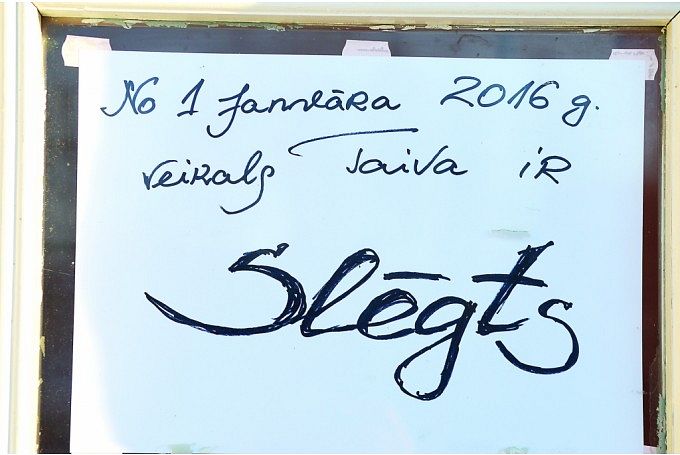 No 1 Janvāra 2016 g.
veikals Taiva ir
Slēgts